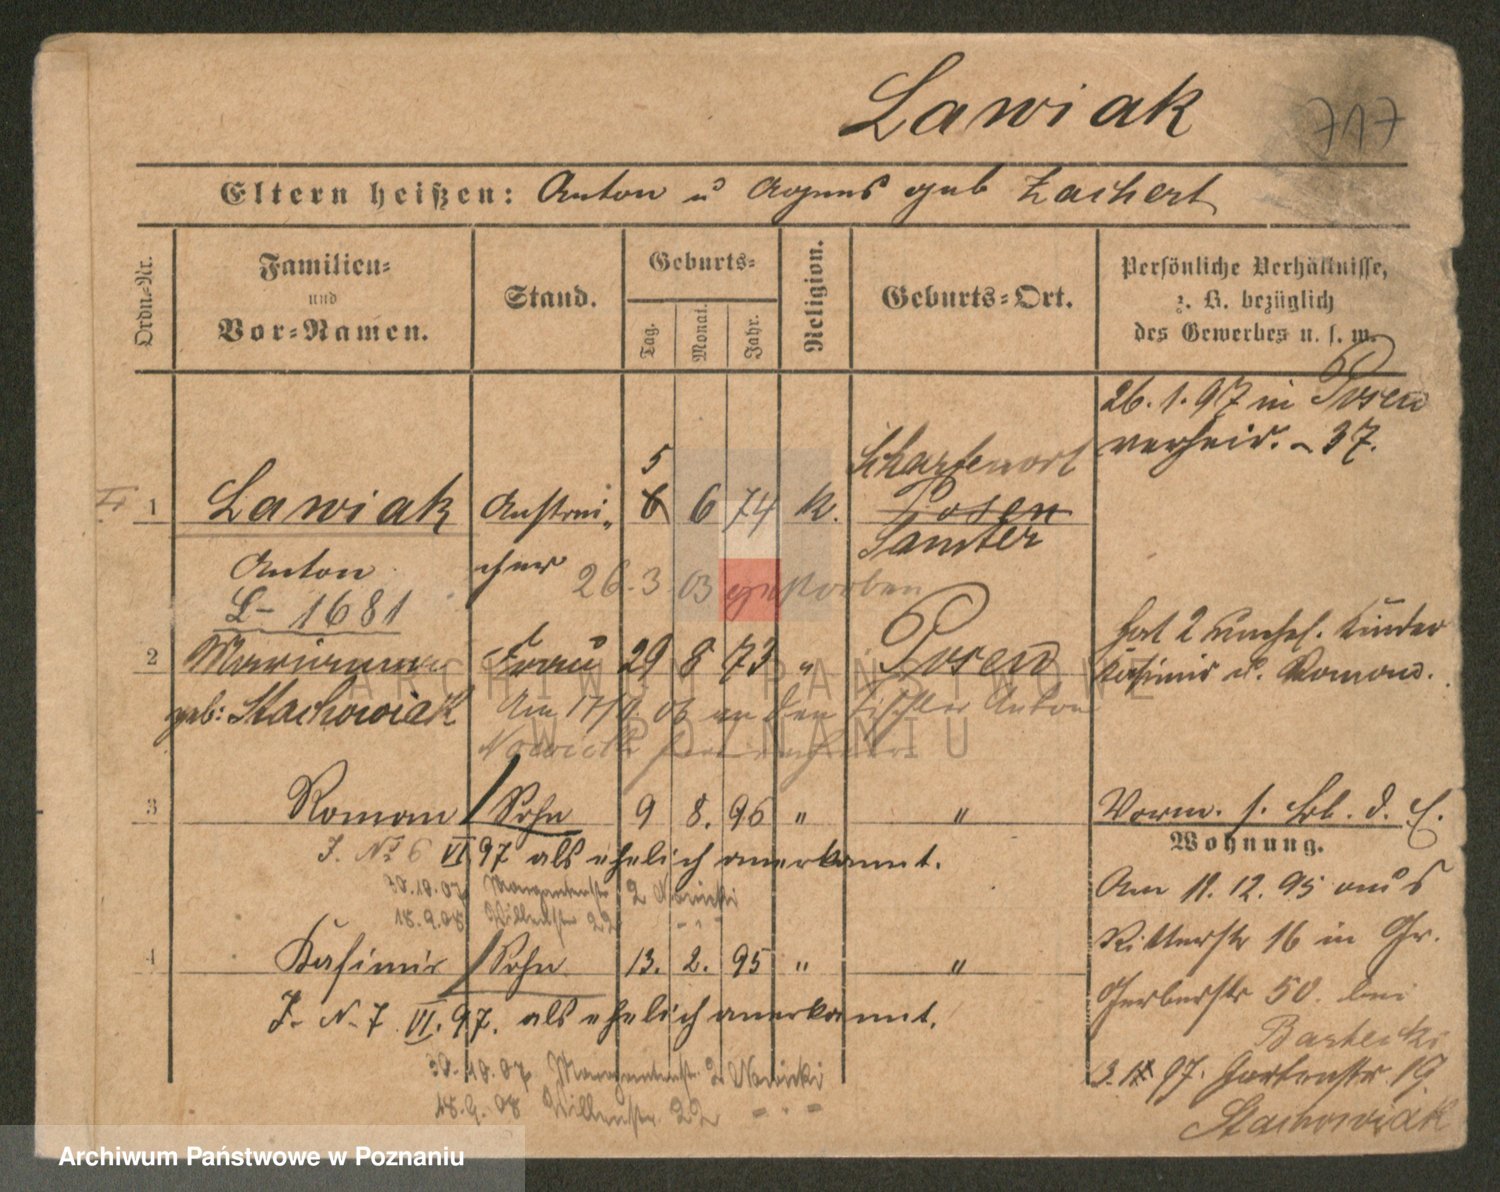 Lawiak
717
Eltern heißen: Anton u Agnes geb Zachert
Ordn.=Nr.
Familien=
und
Vor=Namen.
Stand.
Geburts=
Tag.
Monat.
Jahr.
Religion.
Geburts=Ort.
Persönliche Verhältnisse,
z. B. bezüglich
des Gewerbes u. s. w.
26. 1. 97 in Posen
verheir. - 37.
5
1 Lawiak Anstrei- 6 6 74 k. Posen
Samter
Anton cher
26. 3. 03 gestorben
L- 1681
2 Marianna Frau 29 8 73 " Posen
hat 2 unehel. Kinder
Kasimir u. Roman.
geb: Stachowiak
Am 17/ 03 an den Tischler Anton
Nowicki
3 Roman / Sohn 9 8. 96 " "
Vorm. s. d.
J. No 6 VI 97 als ehelich anerkannt.
Wohnung.
30.10.07 Margaretenstr 2 Nowicki
18.9.08 Willenstr 22 - " -
Am 11. 12. 95 aus
Ritterstr 16 in Gr.
4 Kasimir / Sohn 13. 2. 95 " "
Gerberstr 50. bei
J. N. 7. VI. 97. als ehelich anerkannt.
Bartecki
30.10.07 Margaretenstr. 2 Nowicki
3. 97. Gartenstr. 19
18.9.08 Willenstr. 22 - " -
Stachowiak
ARCHIWUM PAŃSTWOWE
W POZNANIU
Archiwum Państwowe w Poznaniu